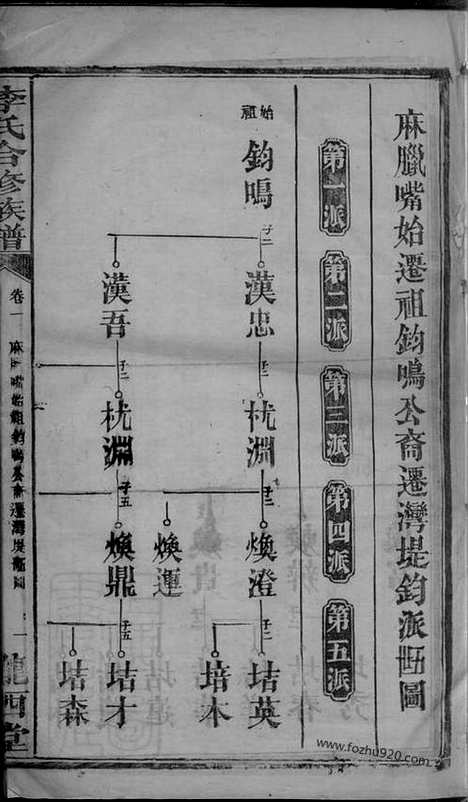 麻臘嘴始遷祖鈞鳴公裔遷灣堤鈞派世圖
第一派
第二派
第三派
第四派
第五派
始祖
鈞鳴
子二
漢忠
漢吾
子二
子二
枕淵
枕淵
子二
子五
煥澄
煥運
煥鼎
子二
子五
培英
培本
培才
培森
李氏合修族譜
卷一
麻臘嘴始祖鈞鳴公裔遷灣堤
圖
一
隴西堂
www.fozhu920.com